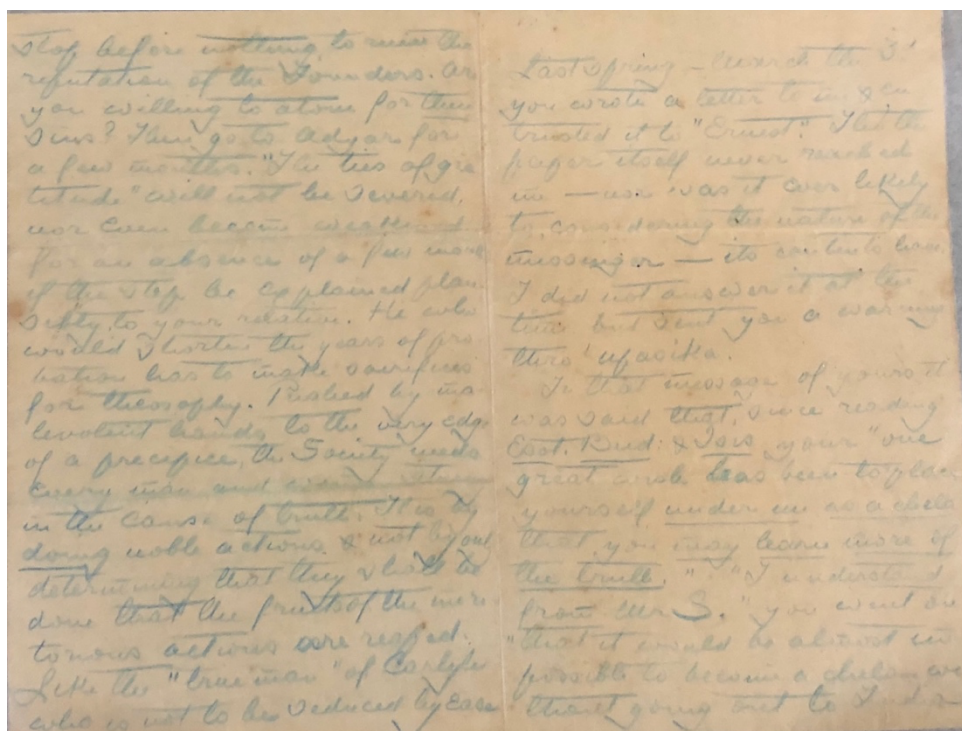 stop before nothing to ruin the
reputation of the Founders. Are
you willing to atone for their
sins? Then go to Adyar for
a few months. "The ties of gra
titude" will not be severed,
nor even become weakened
for an absence of a few months
if the step be explained plau
sibly to your relation. He who
would shorten the years of pro
bation has to make sacrifices
for theosophy. Pushed by ma
levolent hands to the very edge
of a precipice, the Society needs
every man and woman strong
in the cause of truth. It is by
doing noble actions & not by only
determining that they shall be
done that the fruits of the meri
torious actions are reaped.
Like the "true man" of Carlyle
who is not to be seduced by ease
Last spring – March the 3d
you wrote a letter to me & en
trusted it to "Ernest". Tho' the
paper itself never reached
me — nor was it ever likely
to, considering the nature of the
messenger — its contents have.
I did not answer it at the
time but sent you a warning
thro' Upasika.
In that message of yours it
was said that, since reading
Esot. Bud: & Isis your "one
great wish has been to place
yourself under me as a chela
that you may learn more of
the truth." "I understand
from Mr S." you went on
"that it would be almost im
possible to become a chela wi
thout going out to India